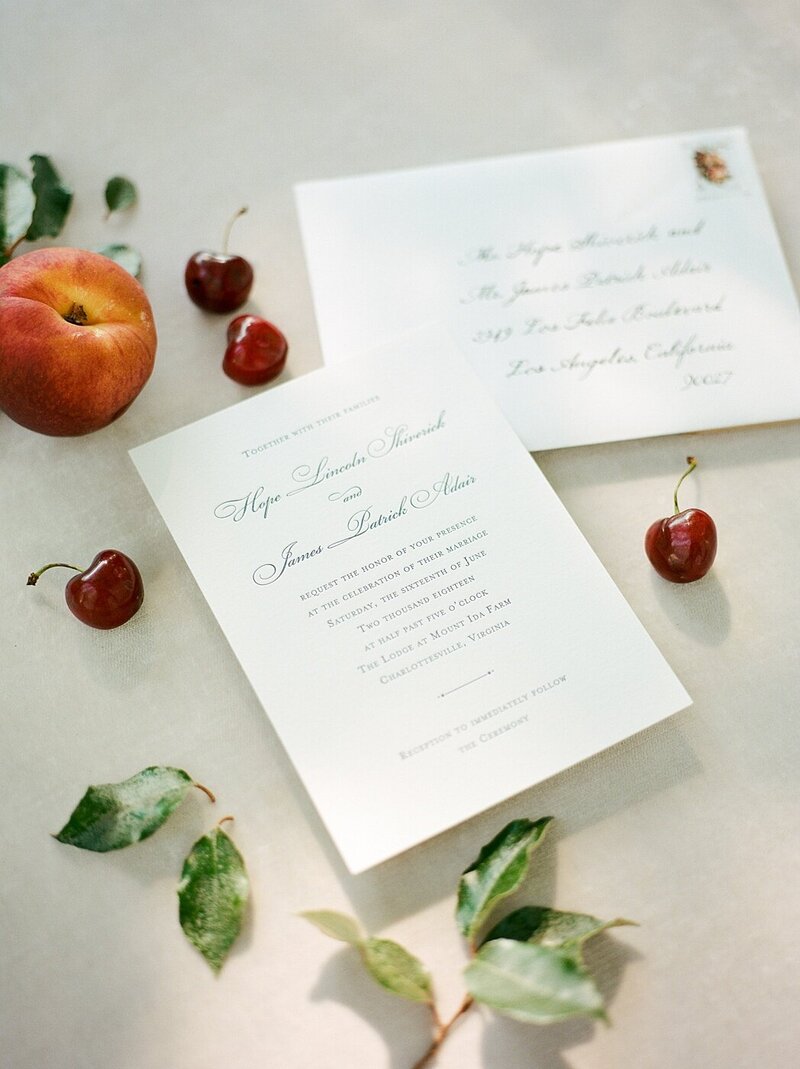 Together with their families
Hope Lincoln Shiverick
and
James Patrick Adair
request the honor of your presence
at the celebration of their marriage
Saturday, the sixteenth of June
Two thousand eighteen
at half past five o'clock
The Lodge at Mount Ida Farm
Charlottesville, Virginia
Reception to immediately follow
the Ceremony
Hope Shiverick and
Mr. James Patrick Adair
Los Feliz Boulevard
Los Angeles, California
90027